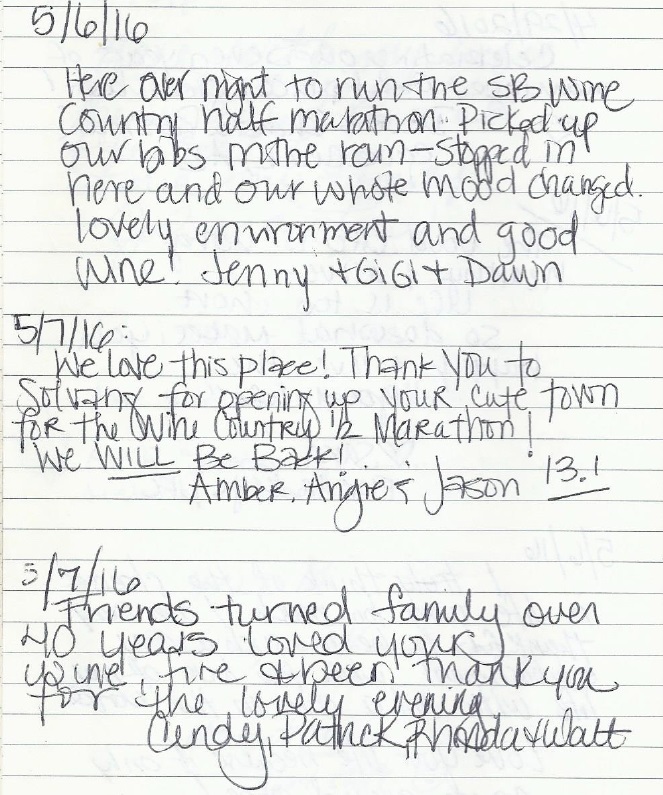 5/6/16
Here over night to run the SB Wine
Country half marathon. Picked up
our bibs in the rain - Stopped in
here and our whole mood changed.
lovely environment and good
wine! Jenny + GiGi + Dawn
5/7/16:
We love this place! Thank you to
Solvang for opening up your cute town
for the Wine Country 1/2 Marathon!
We WILL Be Back!
Amber, Angie & Jason 13.1
5/7/16
Friends turned family over
40 years loved your
wine, fire & beer thank you
for the lovely evening
Cindy, Patrick, Rhonda + Walt